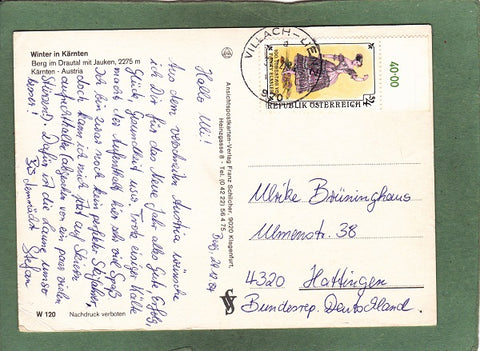 Winter in Kärnten
Berg im Drautal mit Jauken, 2275 m
Kärnten - Austria
Berg, 28.12.84
Hallo Ulli!
Aus dem verschneiten Austria wünsche
ich Dir für das Neue Jahr alles Gute, Erfolg,
Glück, Gesundheit usw. Trotz eisiger Kälte
macht der Aufenthalt hier sehr viel Spaß
Ich bin zwar noch kein perfekter Skifahrer,
doch kann ich mich jetzt auf Skiern
aufrechthalten, abgesehen von ein paar vielen
Stürzen. Dafür ist die Laune umso
besser!
Bis demnächst
Stefan
W 120
Nachdruck verboten
Ansichtspostkarten-Verlag Franz Schilcher, 9020 Klagenfurt,
Heinzgasse 8 - Tel. (0 42 22) 56 4 75
VILLACH
REPUBLIK ÖSTERREICH
40·00
Ulrike Brüninghaus
Ulmenstr. 38
4320 Hattingen
Bundesrep. Deutschland